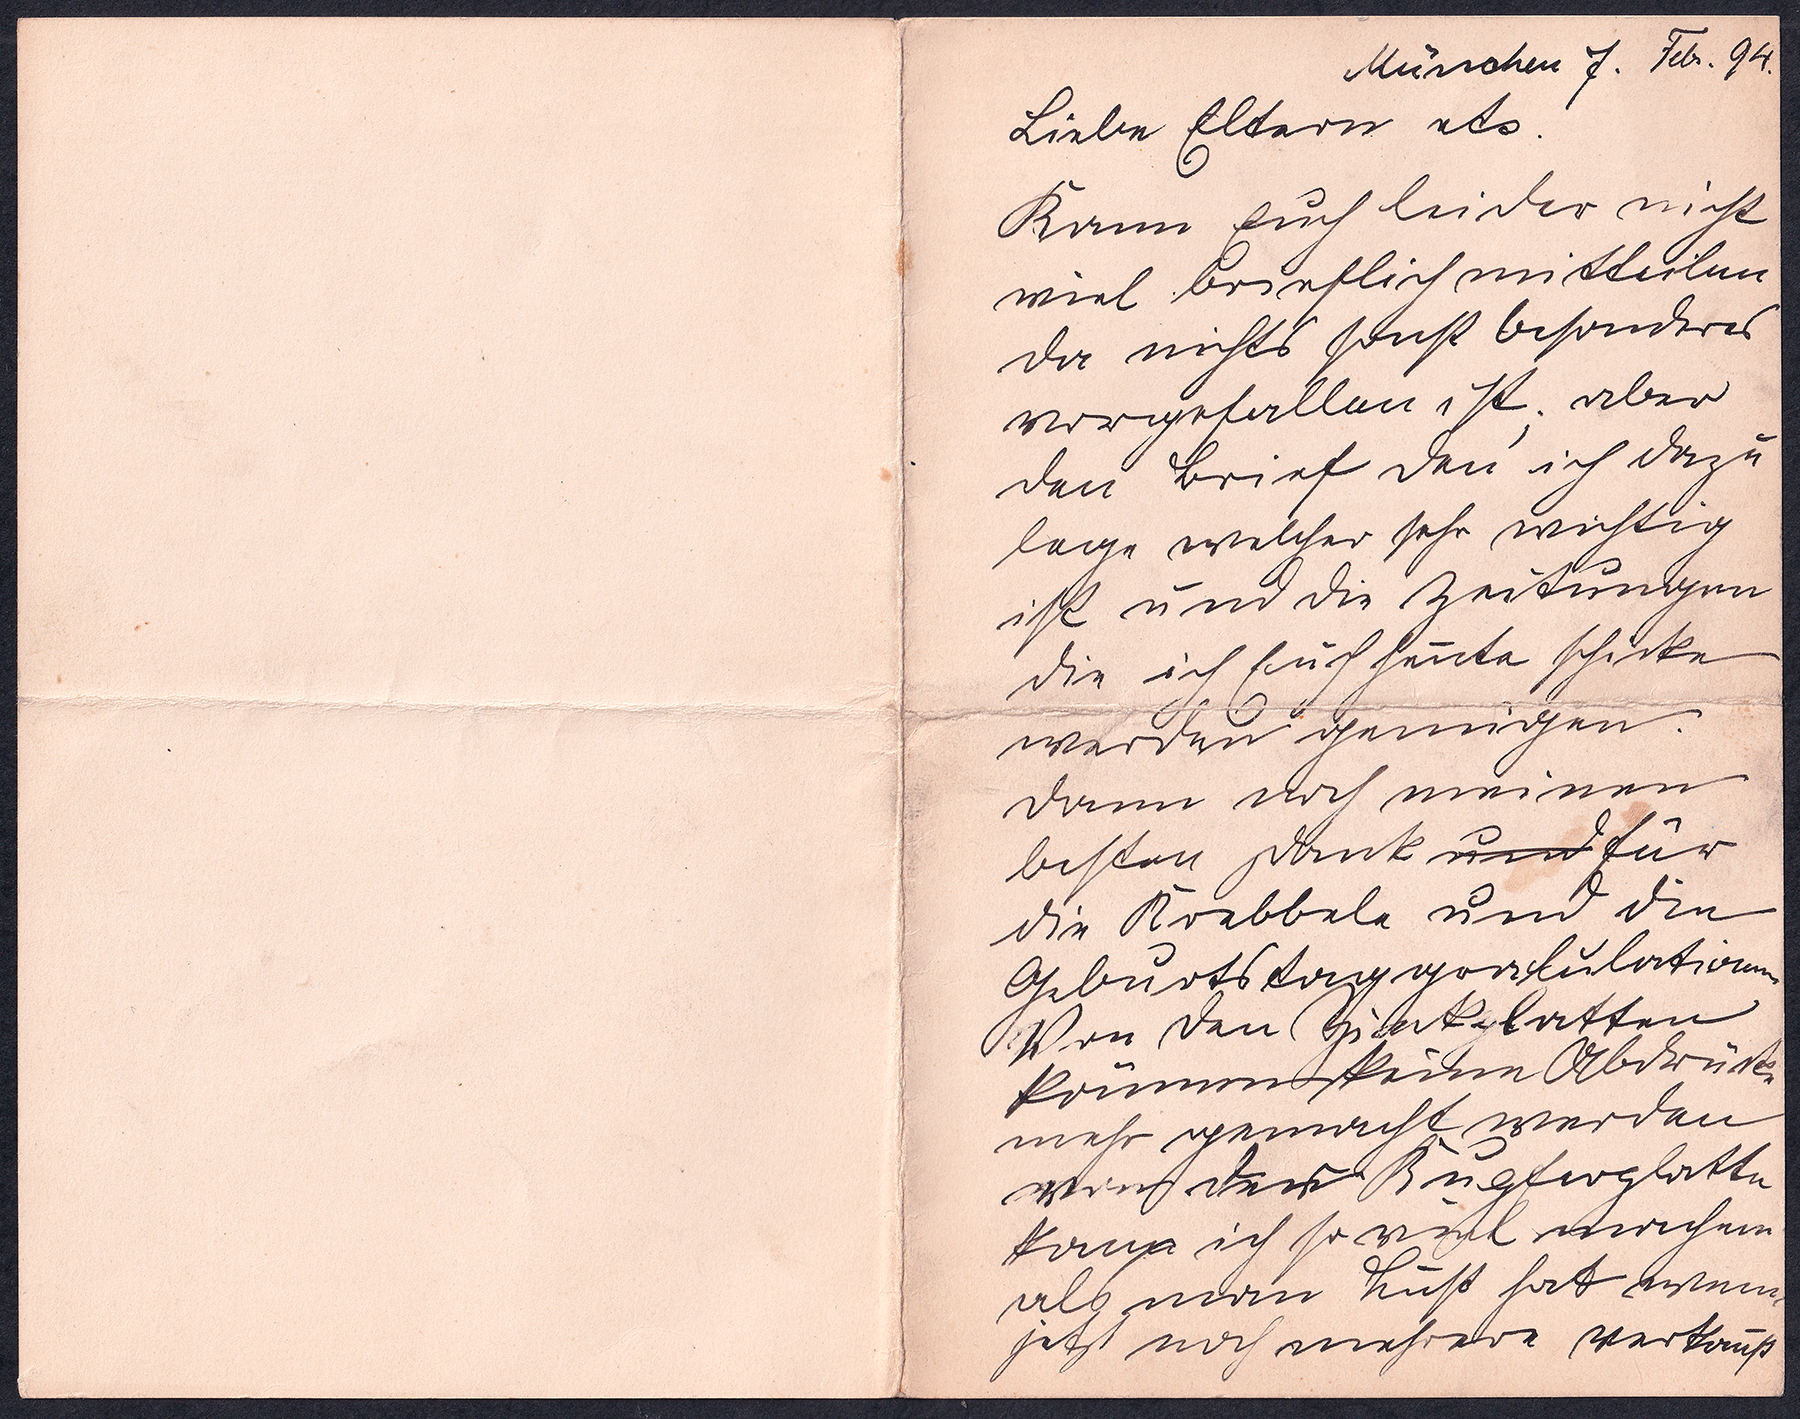 München 7. Febr. 94.
Liebe Eltern etc.
Kann Euch leider nicht
viel brieflich mittheilen
da nichts sonst besonderes
vorgefallen ist, aber
den Brief den ich dazu
lege welcher sehr wichtig
ist und die Zeitungen
die ich Euch heute schicke
werden genügen.
Dann noch meinen
besten Dank und für
die Krebbele und die
Geburtstaggratulationen
Von den Zinkplatten
können keine Abdrücke
mehr gemacht werden
von der Kupferplatte
kann ich so viel machen
als man Lust hat wenn
jetzt noch mehrere verkauft